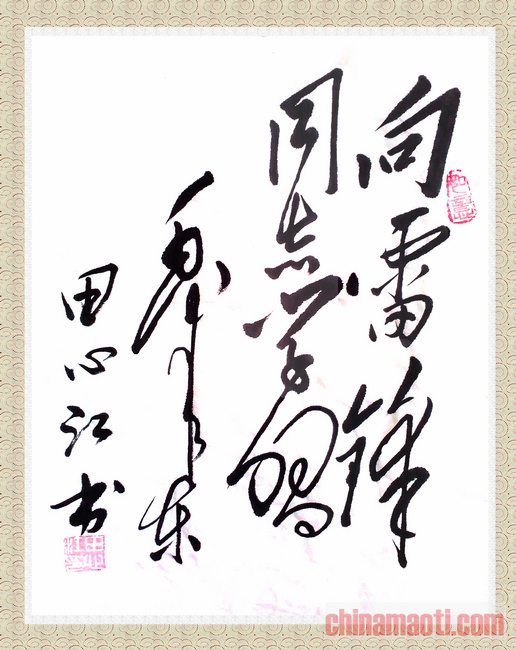 向雷锋
同志学习
毛泽东
田心江书
chinamaoti.com